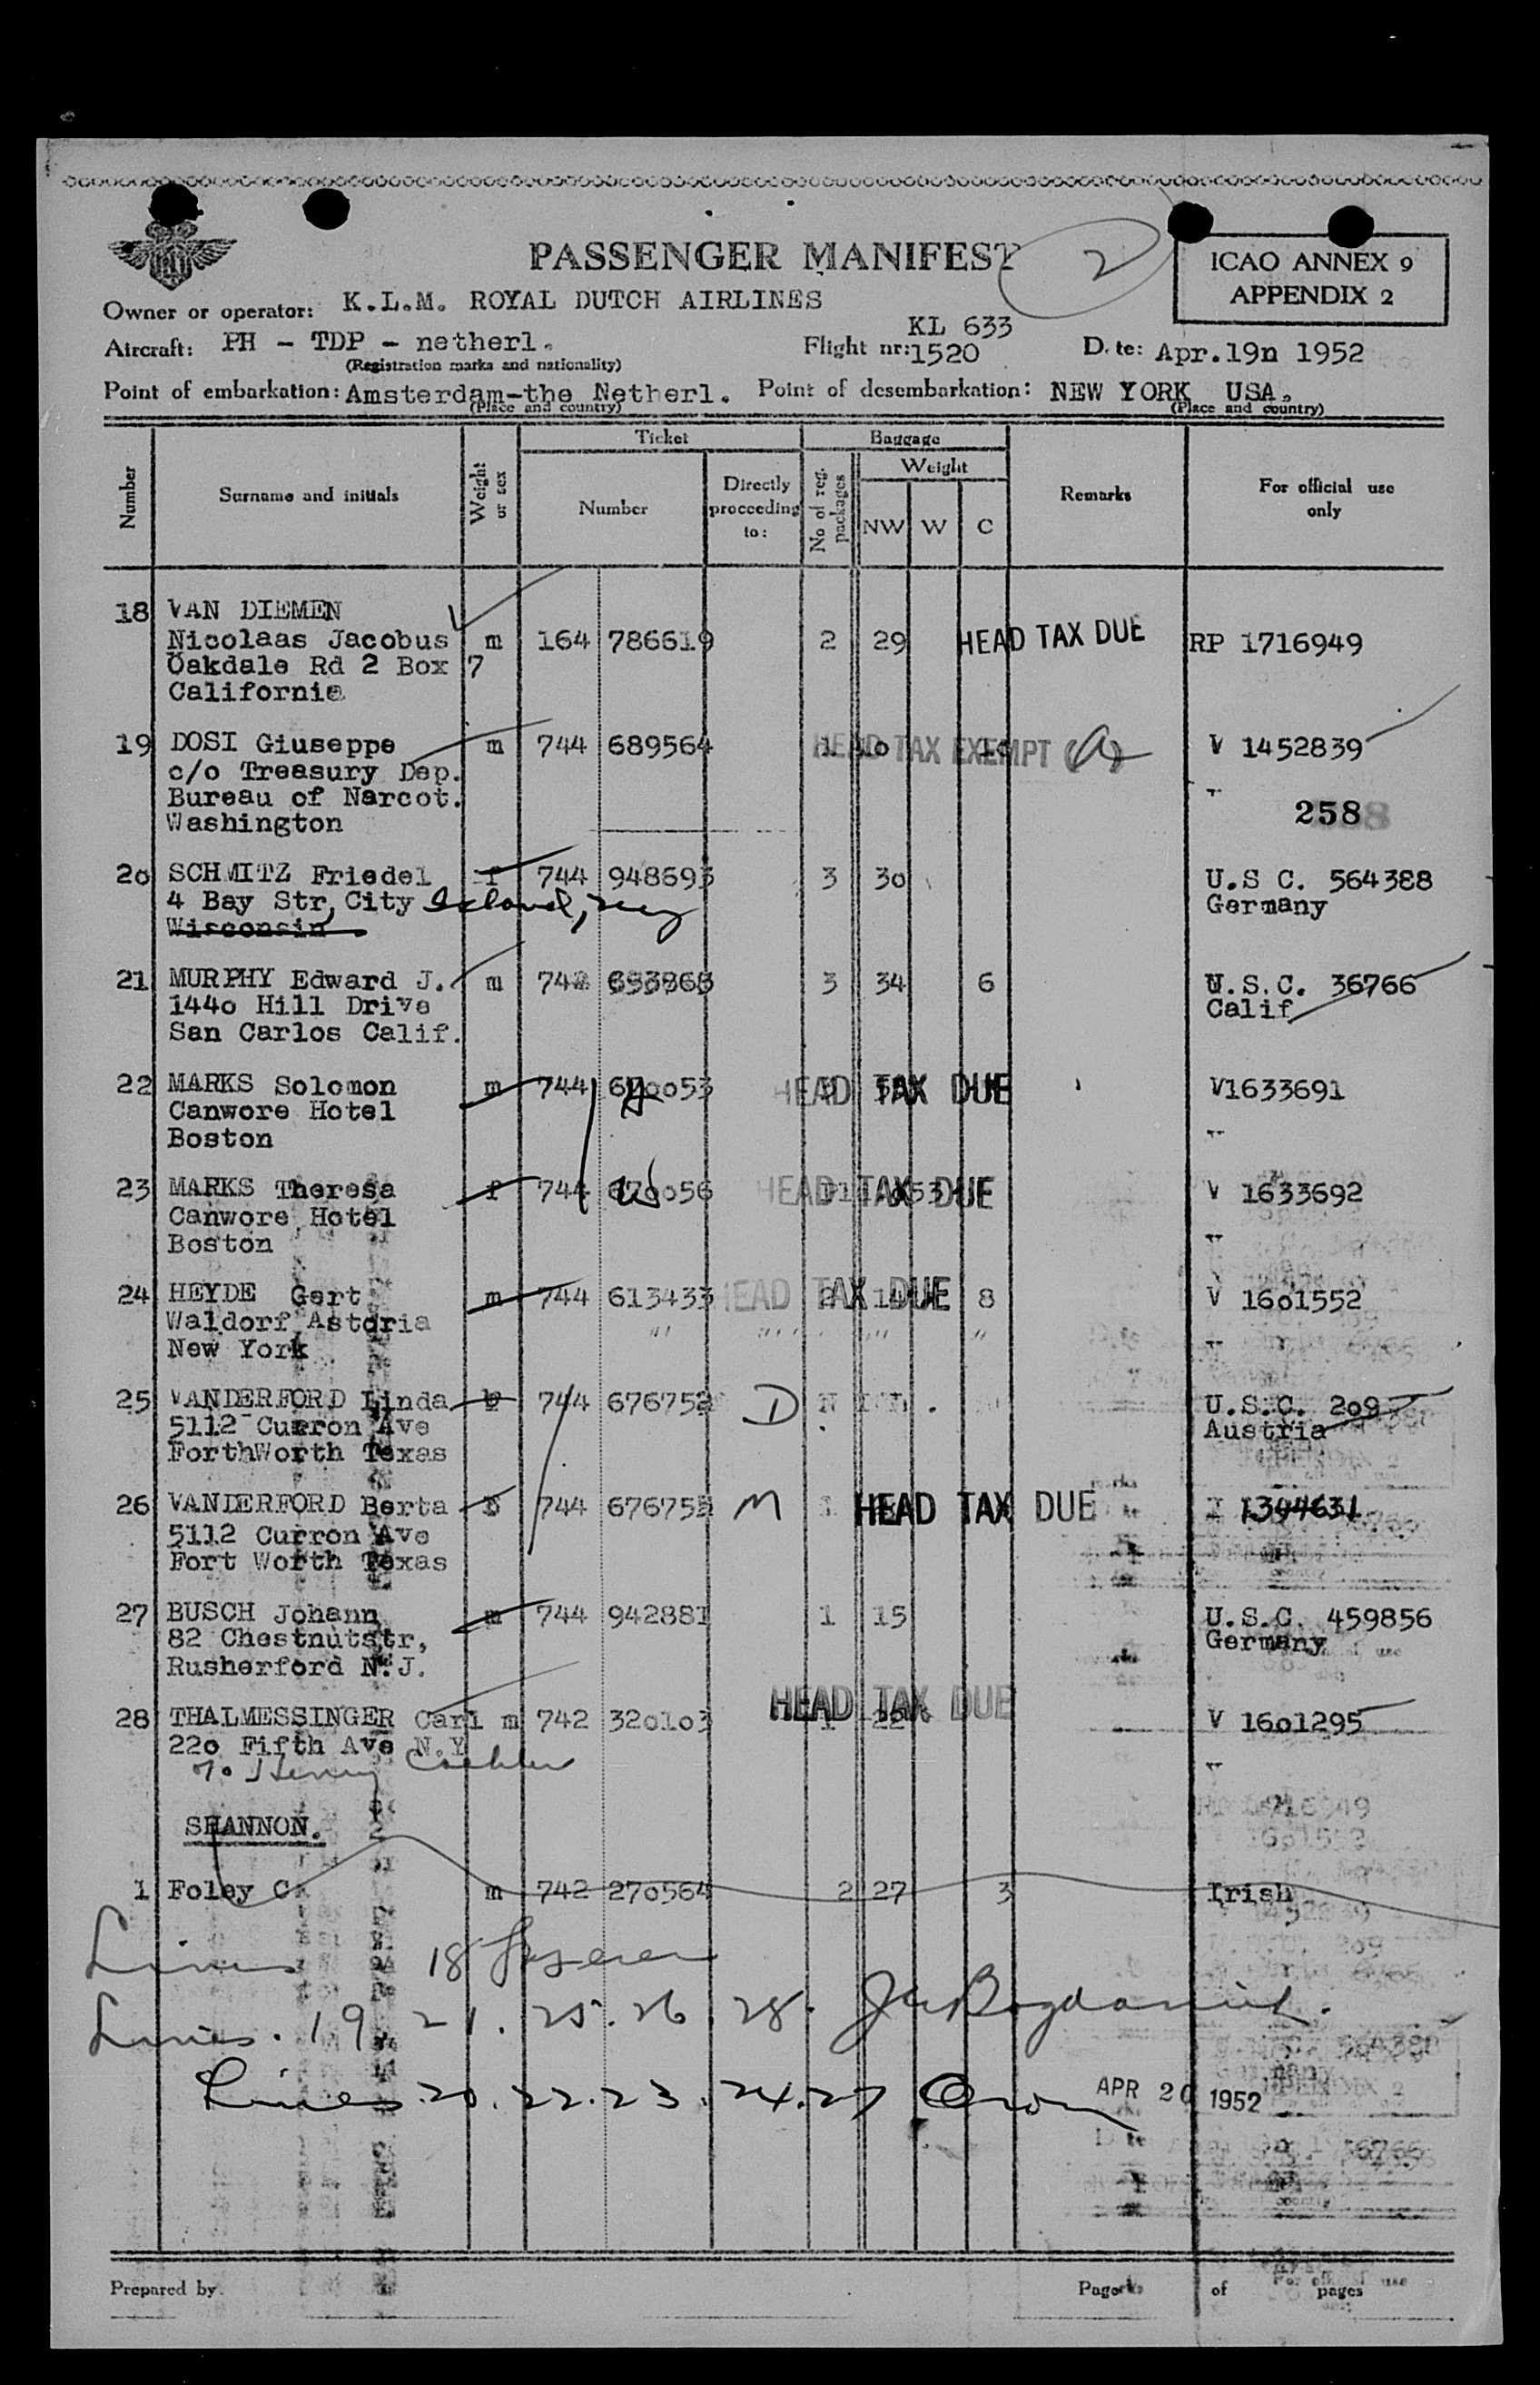 PASSENGER MANIFEST
2
ICAO ANNEX 9
APPENDIX 2
Owner or operator: K.L.M. ROYAL DUTCH AIRLINES
Aircraft: PH - TDP - netherl.
(Registration marks and nationality)
Flight nr: KL 633
1520
Date: Apr.19n 1952
Point of embarkation: Amsterdam-the Netherl.
(Place and country)
Point of desembarkation: NEW YORK USA.
(Place and country)
Number
Surname and initials
Weight or sex
Ticket
Number
Directly proceeding to:
Baggage
No of reg. packages
Weight
NW W C
Remarks
For official use only
18 VAN DIEMEN
Nicolaas Jacobus m 164 786619 2 29 HEAD TAX DUE RP 1716949
Oakdale Rd 2 Box 7
California
19 DOSI Giuseppe m 744 689564 1 10 HEAD TAX EXEMPT (A) V 1452839
c/o Treasury Dep.
Bureau of Narcot. "
Washington 258
20 SCHMITZ Friedel f 744 948693 3 30 U.S C. 564388
4 Bay Str, City Island, NY Germany
Wisconsin
21 MURPHY Edward J. m 742 3 34 6 U.S.C. 36766
1440 Hill Drive Calif
San Carlos Calif.
22 MARKS Solomon m 744 670053 HEAD TAX DUE V1633691
Canwore Hotel
Boston "
23 MARKS Theresa f 744 670056 HEAD TAX DUE V 1633692
Canwore Hotel
Boston "
24 HEYDE Gert m 744 613433 2 14 HEAD TAX DUE 8 V 1601552
Waldorf Astoria
New York "
25 VANDERFORD Linda 744 676752 D U.S.C. 209
5112 Curron Ave Austria
ForthWorth Texas
26 VANDERFORD Berta 744 M 1 HEAD TAX DUE 1344631
5112 Curron Ave
Fort Worth Texas
27 BUSCH Johann m 744 942881 1 15 U.S.C. 459856
82 Chestnutstr, Germany
Rusherford N.J.
28 THALMESSINGER Carl m 742 320103 HEAD TAX DUE 1 22 V 1601295
220 Fifth Ave N.Y
Henny "
SHANNON.
1 Foley C m 742 270564 2 27 3 Irish
Lines 18
Lines. 19. 21. 25. 26. 28.
Lines. 20. 22. 23. 24. 27 APR 20 1952
Prepared by
Page of pages